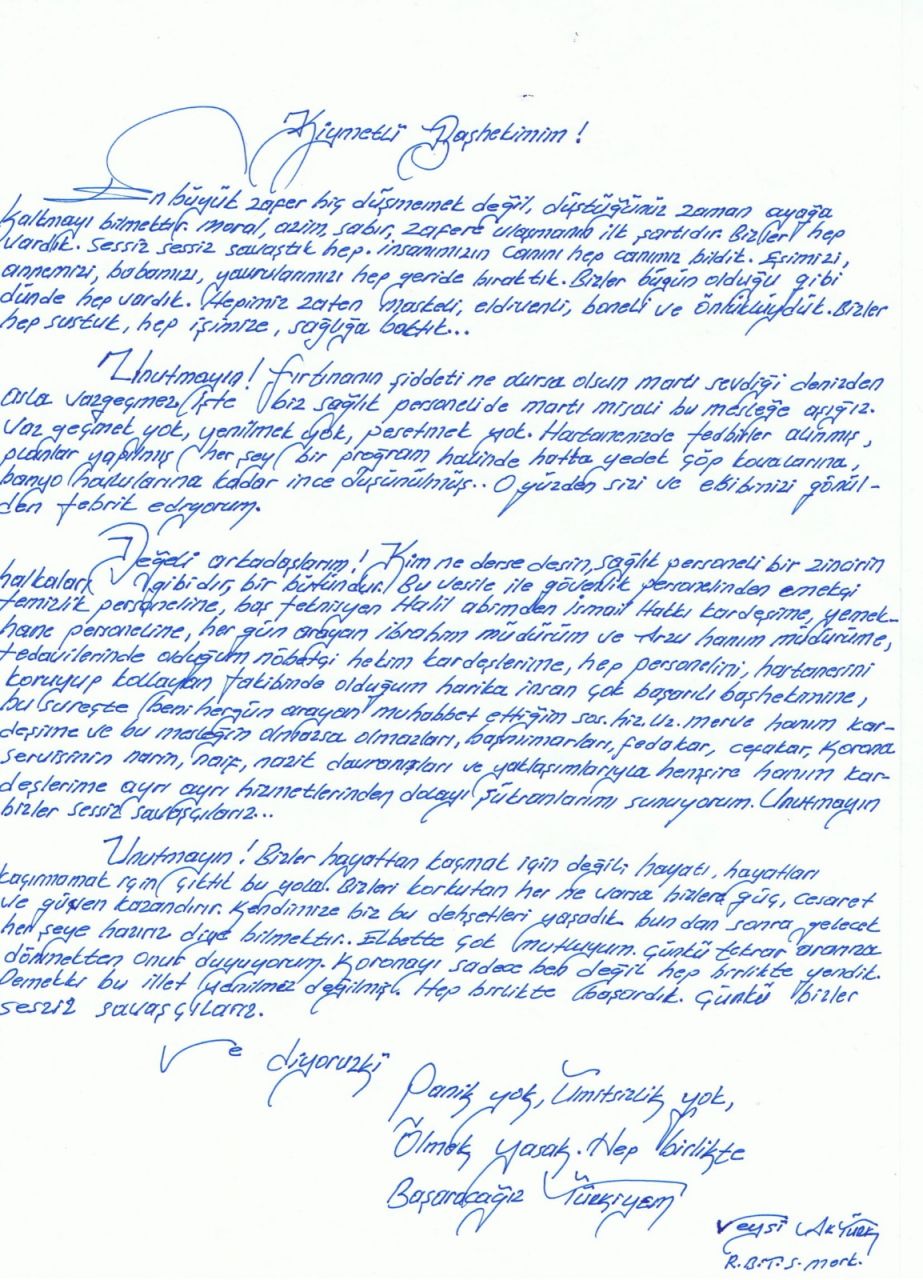 Kiymetli Başhekimim!
En büyük zafer hiç düşmemek değil, düştüğünüz zaman ayağa
kalkmayı bilmektir. Moral, azim, sabır, zafere ulaşmanın ilk şartıdır. Bizler hep
vardık. Sessiz sessiz savaştık hep. İnsanımızın canını hep canımız bildik. Eşimizi,
annemizi, babamızı, yavrularımızı hep geride bıraktık. Bizler bugün olduğu gibi
dünde hep vardık. Hepimiz zaten maskeli, eldivenli, boneli ve önlüklüydük. Bizler
hep sustuk, hep işimize, sağlığa baktık...
Unutmayın! Fırtınanın şiddeti ne olursa olsun martı sevdiği denizden
asla vazgeçmez. İşte biz sağlık personelide martı misali bu mesleğe aşığız.
Vaz geçmek yok, yenilmek yok, pesetmek yok. Hastanenizde tedbirler alınmış,
planlar yapılmış her şey bir program halinde hatta yedek çöp kovalarına,
banyo havlularına kadar ince düşünülmüş.. O yüzden sizi ve ekibinizi gönül-
den tebrik ediyorum.
Değerli arkadaşlarım! Kim ne derse desin, sağlık personeli bir zincirin
halkaları gibidir, bir bütündür. Bu vesile ile güvenlik personelinden emekçi
temizlik personeline, baş teknisyen Halil abimden İsmail Hakkı kardeşime, yemek-
hane personeline, her gün arayan İbrahim müdürüm ve Arzu hanım müdürüme,
tedavilerinde olduğum nöbetçi hekim kardeşlerime, hep personelini, hastanesini
koruyup kollayan takibinde olduğum harika insan çok başarılı başhekimine,
bu süreçte beni hergün arayan muhabbet ettiğim sos. hiz. uz. merve hanım kar-
deşime ve bu mesleğin olmazsa olmazları, başmimarları, fedakar, cefakar, Korona
servisinin narin, naif, nazik davranışları ve yaklaşımlarıyla hemşire hanım kar-
deşlerime ayrı ayrı hizmetlerinden dolayı şükranlarımı sunuyorum. Unutmayın
bizler sessiz savaşçılarız...
Unutmayın! Bizler hayattan kaçmak için değil, hayatı, hayatları
kaçırmamak için çıktık bu yola. Bizleri korkutan her ne varsa bizlere güç, cesaret
ve güven kazandırır. Kendimize biz bu dehşetleri yaşadık bundan sonra gelecek
her şeye hazırız diye bilmektir.. Elbette çok mutluyum. Çünkü tekrar aranıza
dönmekten onur duyuyorum. Koronayı sadece ben değil hep birlikte yendik.
Demekki bu illet yenilmez değilmiş. Hep birlikte başardık. Çünkü bizler
sessiz savaşçılarız.
Ve diyoruzki
Panik yok, Ümitsizlik yok,
Ölmek yasak. Hep birlikte
Başaracağız Türkiyem
Veysi Aktürk
R.B.T.S. Mork.